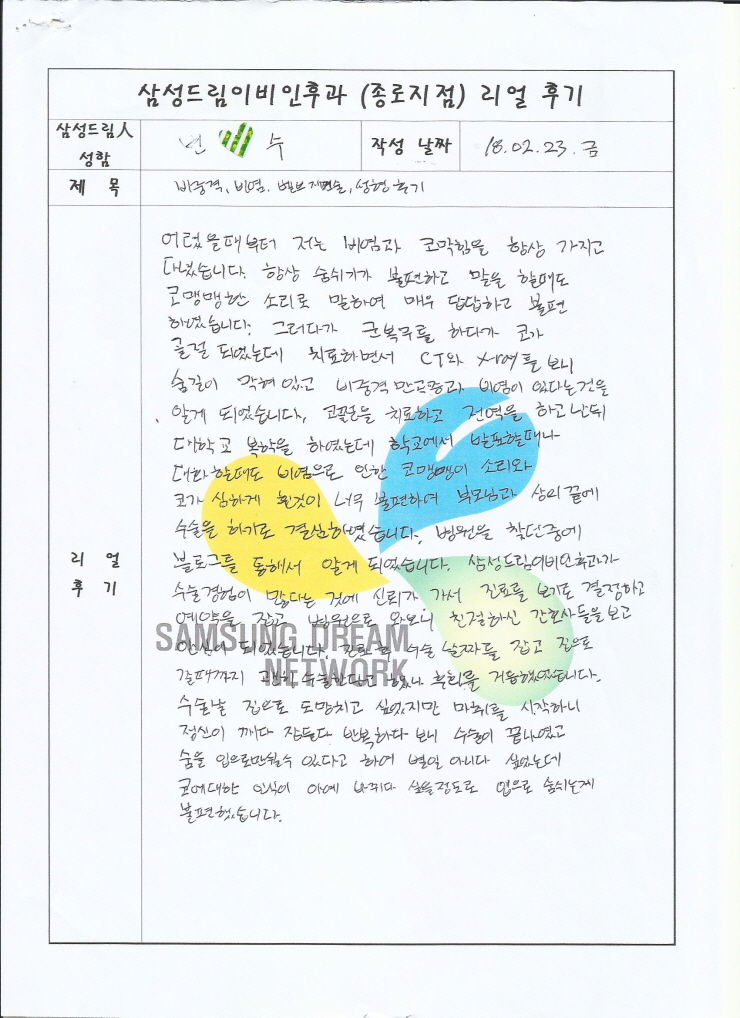 삼성드림이비인후과 (종로지점) 리얼 후기
삼성드림人 성함
변 수
작성 날짜
18.02.23.금
제 목
비중격, 비염, 성형 후기
리 얼 후 기
어렸을때부터 저는 비염과 코막힘을 항상 가지고
다녔습니다. 항상 숨쉬기가 불편하고 말을 할때도
코맹맹한 소리로 말하여 매우 답답하고 불편
하였습니다. 그러다가 군복무를 하다가 코가
골절 되었는데 치료하면서 CT와 X-ray를 보니
숨길이 막혀 있고 비중격만곡증과 비염이 있다는것을
알게 되었습니다. 코골절을 치료하고 전역을 하고난뒤
대학교 복학을 하였는데 학교에서 발표할때나
대화할때도 비염으로 인한 코맹맹이 소리와
코가 심하게 휜것이 너무 불편하여 부모님과 상의 끝에
수술을 하기로 결심하였습니다. 병원을 찾던중에
블로그를 통해서 알게 되었습니다. 삼성드림이비인후과가
수술경험이 많다는 것에 신뢰가 가서 진료를 보기로 결정하고
예약을 잡고 병원으로 와보니 친절하신 간호사들을 보고
안심이 되었습니다. 진료 후 수술 날짜를 잡고 집으로
갈때까지 괜히 수술한다고 했나 후회를 거듭했었습니다.
수술날 집으로 도망치고 싶었지만 마취를 시작하니
정신이 깨다 잠들다 반복하다 보니 수술이 끝나였고
숨을 입으로만쉴수 있다고 하여 별일 아니다 싶었는데
코에대한 인식이 아예 바뀌다 싶을정도로 입으로 숨쉬는게
불편했습니다.
SAMSUNG DREAM
NETWORK